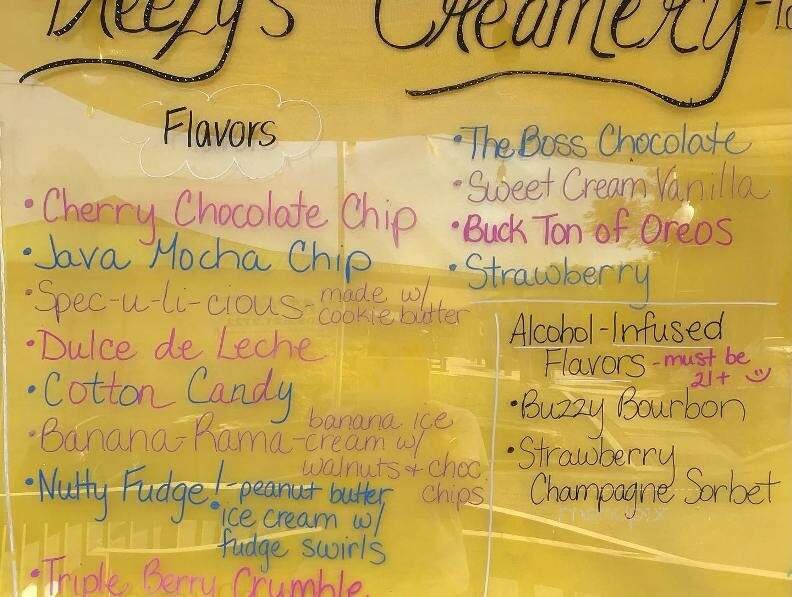 Creamery
Flavors
• Cherry Chocolate Chip
• Java Mocha Chip
• Spec-u-li-cious - made w/
cookie butter
• Dulce de Leche
• Cotton Candy
• Banana-Rama - banana ice
cream w/
walnuts + choc
chips
• Nutty Fudge! - peanut butter
ice cream w/
fudge swirls
• Triple Berry Crumble
• The Boss Chocolate
• Sweet Cream Vanilla
• Buck Ton of Oreos
• Strawberry
Alcohol-Infused
Flavors - must be
21+
• Buzzy Bourbon
• Strawberry
Champagne Sorbet